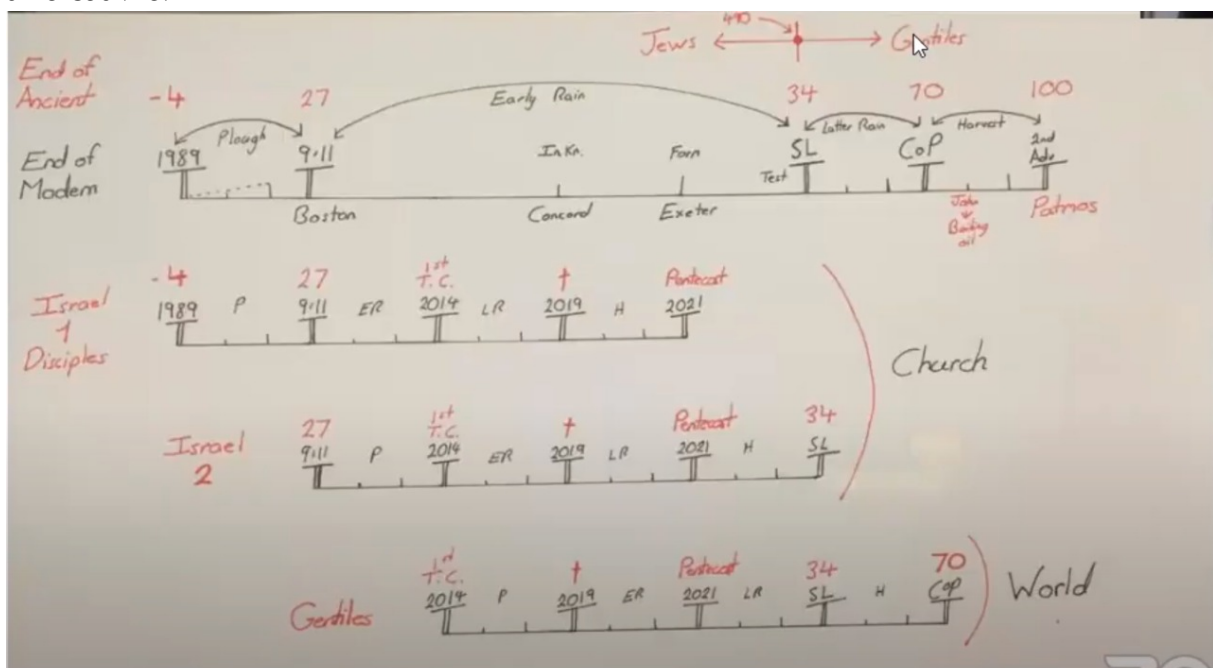 490
Jews Gentiles
End of
Ancient -4 27 Early Rain 34 70 100
Plough Latter Rain Harvest
End of
Modern 1989 9·11 In Kn. Form SL CoP 2nd
Adv
Test
Boston Concord Exeter John Patmos
Boiling
oil
Israel
1
Disciples
-4 27 1st
T.C. † Pentecost
1989 P 9·11 ER 2014 LR 2019 H 2021
Church
Israel
2
27 1st
T.C. † Pentecost 34
9·11 P 2014 ER 2019 LR 2021 H SL
Gentiles
1st
T.C. † Pentecost 34 70
2014 P 2019 ER 2021 LR SL H CoP
World